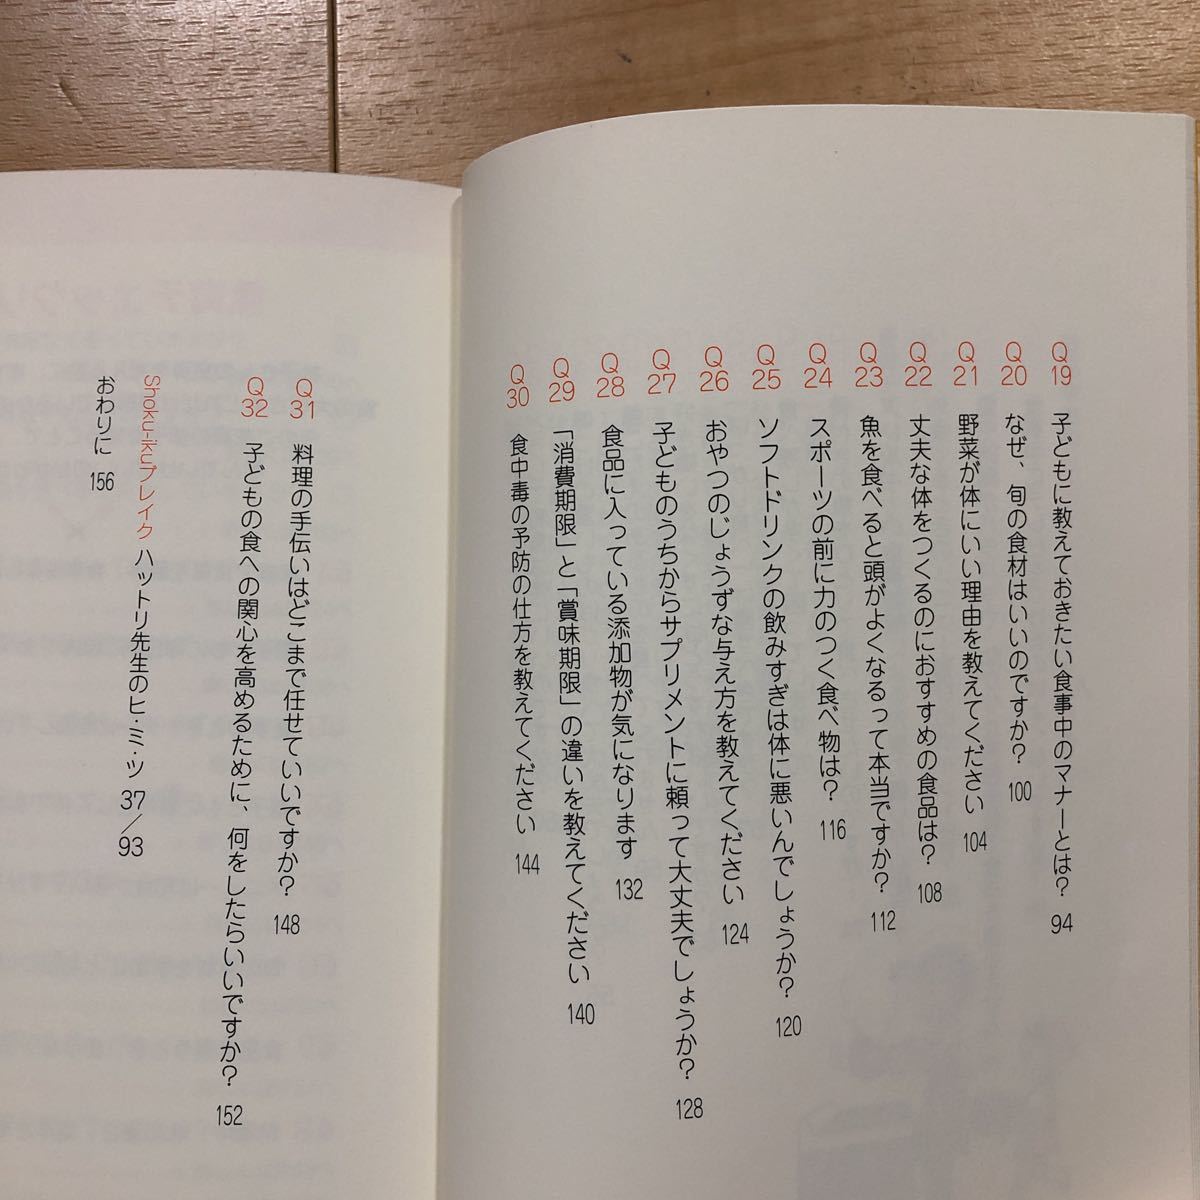 Q19 子どもに教えておきたい食事中のマナーとは? 94
Q20 なぜ、旬の食材はいいのですか? 100
Q21 野菜が体にいい理由を教えてください 104
Q22 丈夫な体をつくるのにおすすめの食品は? 108
Q23 魚を食べると頭がよくなるって本当ですか? 112
Q24 スポーツの前に力のつく食べ物は? 116
Q25 ソフトドリンクの飲みすぎは体に悪いんでしょうか? 120
Q26 おやつのじょうずな与え方を教えてください 124
Q27 子どものうちからサプリメントに頼って大丈夫でしょうか? 128
Q28 食品に入っている添加物が気になります 132
Q29 「消費期限」と「賞味期限」の違いを教えてください 140
Q30 食中毒の予防の仕方を教えてください 144
Q31 料理の手伝いはどこまで任せていいですか? 148
Q32 子どもの食への関心を高めるために、何をしたらいいですか? 152
Shoku-ikuブレイク ハットリ先生のヒ・ミ・ツ 37/93
おわりに 156